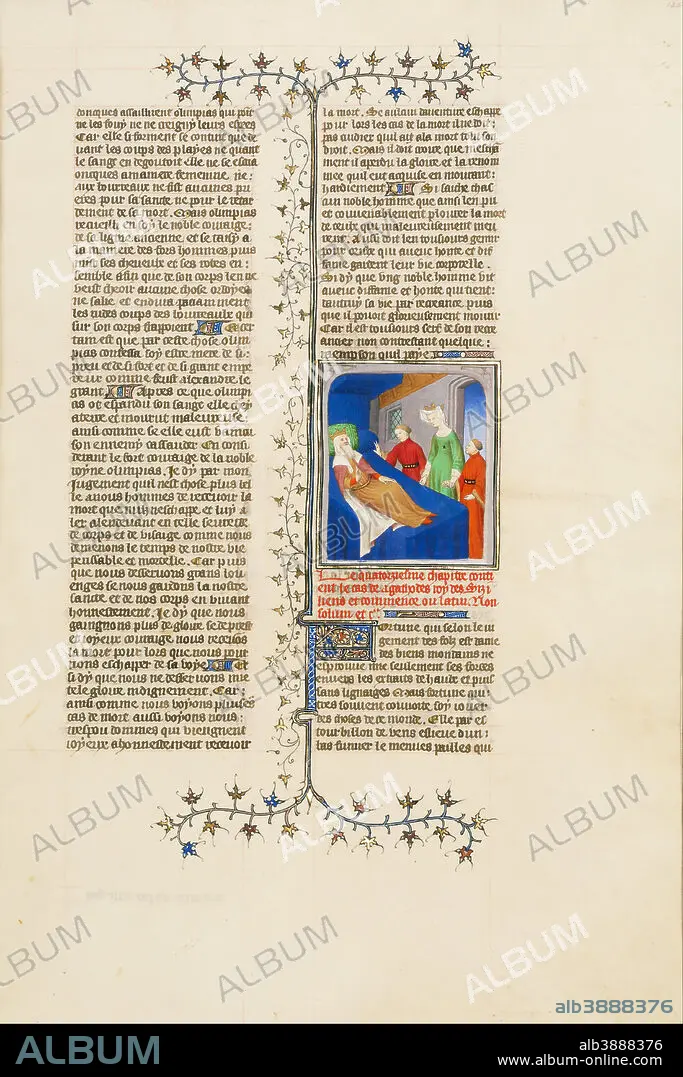 onques assaillirent olimpias qui poit
ne les fouy ne ne creigny leurs espees
Car elle si forment se contint que de
uant les coups des playes ne quant
le sang en degoutoit elle ne se essaia
onques a maniere femenine ne
aux bourreaux ne fist aucunes pri
eres pour sa sante ne pour le retar
dement de sa mort. Mais olimpias
recueilli en soy le noble courage
de sa lignee ancienne et se taisy a
la maniere des fors hommes puis
prist ses cheueux et ses robes en
semble affin que de son corps len ne
veist cheoir aucune chose orde
ne salie et endura paciamment
les rudes coups des bourreaulx qui
sur son corps frapoient Et cer
tain est que par ceste chose olim
pias confessa soy estre mere de si
preu et de si fort et de si grant empe
reur comme feust alexandre le
grant Apres ce que olimpi
as ot espandu son sang elle a
terree et mourut maleureuse
ainsi comme se elle eust vaincu
son ennemy cassander. En consi
derant le fort courage de la noble
royne olimpias. Je dy par mon
jugement quil nest chose plus bel
le a nous hommes de receuoir la
mort que nulz neschappe et luy a
ler alendeuant en telle seurete
de corps et de visaige comme nous
demenons le temps de nostre vie
perissable et mortelle. Car puis
que nous desseruons grans lou
enges se nous gardons la nostre
sante et de nos corps en viuant
honnestement. Je dy que nous
gaingnons plus de gloire se de prest
et joyeux courage nous receuons
la mort pour lors que nous pou
uons eschapper de sa voye Et
si dy que nous ne desseruons mie
tele gloire indignement. Car
ainsi comme nous voyons pluseurs
cas de mort aussi voyons nous
trespou dommes qui vueillent
joyeux a honnestement receuoir
la mort. Se aucun dauenture eschape
pour lors les cas de la mort il ne doit
pas cuidier quil ait a la mort tolu son
droit. Mais il doit croire que mescha
ment il a perdu la gloire et la renom
mee quil eust acquise en mourant
hardiement Si sache chas
cun noble homme que ainsi len pu
et conuenablement plourer la mort
de ceulx qui maleureusement meu
rent. Aussi doit len tousiours gemir
pour ceulx qui auec honte et dif
fame gardent leur vie corporelle.
Si dy que ung noble homme vit
auecques diffame et honte qui tient
tant sa vie par recreance puis
que il pouoit glorieusement mourir
Car il est tousiours serf de son recre
ancier non contrestant quelque
raençon quil paye
Le quatorziesme chapitre conti
ent le cas de agathodes roy des Sizi
liens et commence ou latin. Non
solum et c.
Fortune qui selon le iu
gement des folz est dame
des biens mondains ne
espreuue mie seulement ses forces
enuers les extraits de haulx et puis
sans lignaiges Mais fortune qui
tres souuent couuoite soy iouer
des choses de ce monde. Elle par es
tourbillon de vens eslieue dun
bas fumier le menues pailles qui
ALBUM
alb3888376
ALBUM
alb3888376
www.album-online.com